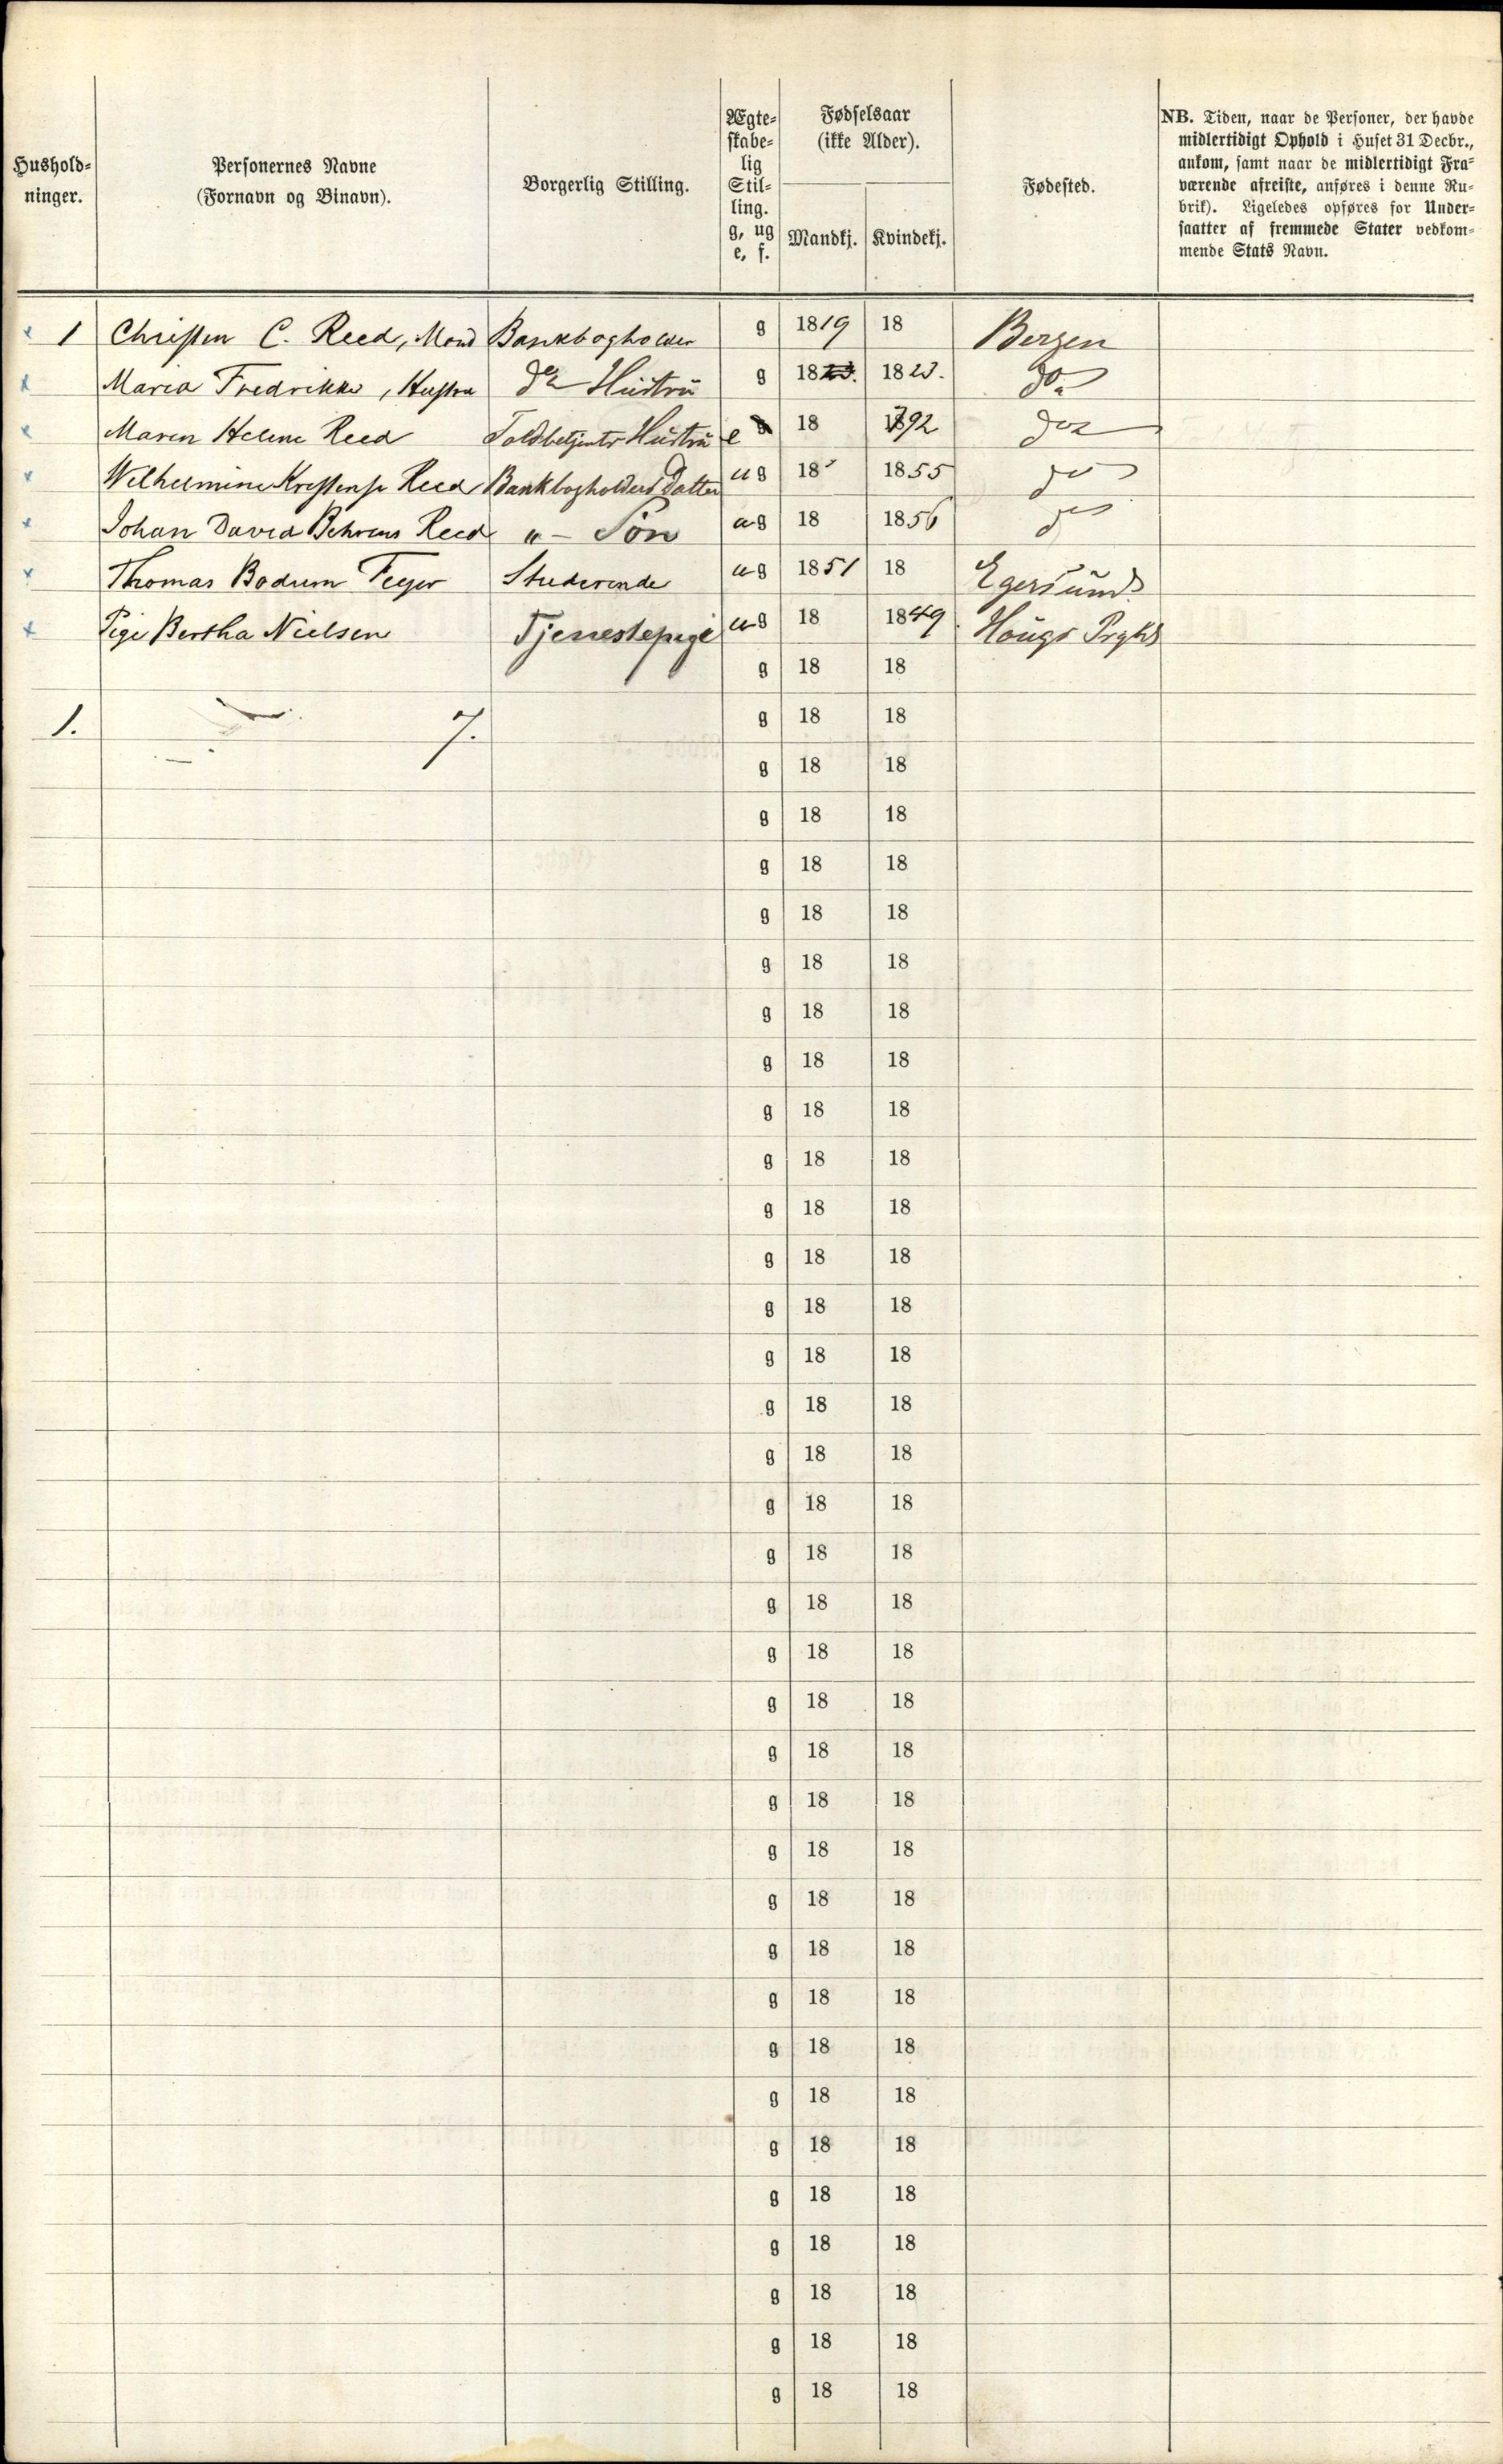 Hushold-
ninger.
Personernes Navne
(Fornavn og Binavn).
Borgerlig Stilling.
Ægte-
skabe-
lig
Stil-
ling.
g, ug
e, f.
Fødselsaar
(ikke Alder).
Mandkj. Kvindekj.
Fødested.
NB. Tiden, naar de Personer, der havde
midlertidigt Ophold i Huset 31 Decbr.,
ankom, samt naar de midlertidigt Fra-
værende afreiste, anføres i denne Ru-
brik). Ligeledes opføres for Under-
saatter af fremmede Stater vedkom-
mende Stats Navn.
1 Christen C. Reed, Mand Bankbogholder g 1819 18 Bergen
Maria Fredrikke, Hustru do Hustru g 1823. 1823. do
Maren Helene Reed Toldbetjents Hustru e 18 1792 do
Wilhelmine Krestense Reed Bankbogholders Datter ug 18 1855 do
Johan David Behrens Reed " - Søn ug 18 1856 do
Thomas Bodum Feyer Studerende ug 1851 18 Egersund
Pige Bertha Nielsen Tjenestepige ug 18 1849 Hougs Prgld
g 18 18
1. 7. g 18 18
g 18 18
g 18 18
g 18 18
g 18 18
g 18 18
g 18 18
g 18 18
g 18 18
g 18 18
g 18 18
g 18 18
g 18 18
g 18 18
g 18 18
g 18 18
g 18 18
g 18 18
g 18 18
g 18 18
g 18 18
g 18 18
g 18 18
g 18 18
g 18 18
g 18 18
g 18 18
g 18 18
g 18 18
g 18 18
g 18 18
g 18 18
g 18 18
g 18 18
g 18 18